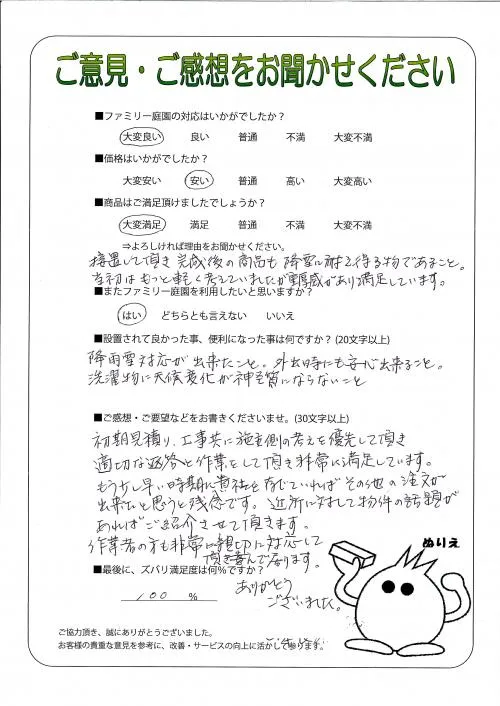 ご意見・ご感想をお聞かせください
■ファミリー庭園の対応はいかがでしたか？
大変良い 良い 普通 不満 大変不満
■価格はいかがでしたか？
大変安い 安い 普通 高い 大変高い
■商品はご満足頂けましたでしょうか？
大変満足 満足 普通 不満 大変不満
⇒よろしければ理由をお聞かせください。
設置して頂き完成後の商品も降雪に耐え得る物であること。
当初はもっと軽く考えていれたが重厚感があり満足しています。
■またファミリー庭園を利用したいと思いますか？
はい どちらとも言えない いいえ
■設置されて良かった事、便利になった事は何ですか？(20文字以上)
降雨雪対応が出来たこと。外出時にも安心出来ること。
洗濯物に天候変化が神経質にならないこと
■ご感想・ご要望などをお書きくださいませ。(30文字以上)
初期見積り、工事共に施主側の考えを優先して頂き
適切な返答と作業をして頂き非常に満足しています。
もう少し早い時期に貴社を存じていればその他の注文が
出来たと思うと残念です。近所に対して物件の話題が
あればご紹介させて頂きます。
作業者の方も非常に親切に対応して
頂き喜んでおります。
■最後に、ズバリ満足度は何％ですか？
100 %
ありがとう
ございました。
ぬりえ
ご協力頂き、誠にありがとうございました。
お客様の貴重な意見を参考に、改善・サービスの向上に活かして参ります。